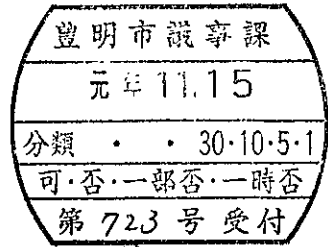 豊明市議事課
元年11.15
分類 ・ ・ 30・10・5・1
可・否・一部否・一時否
第723号受付